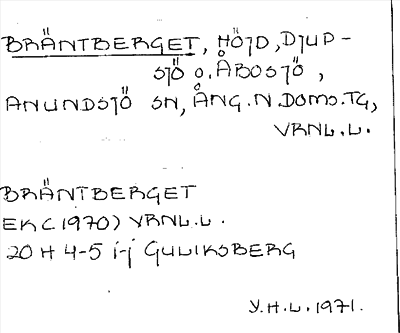 BRÄNTBERGET, HÖJD, DJUP-
SJÖ O. ÅBOSJÖ,
ANUNDSJÖ SN, ÅNG. N. DOMS. TG,
VRNL. L.
BRÄNTBERGET
EK (1970) VRNL. L.
20 H 4-5 i-j GULIKSBERG
Y. H. L. 1971.